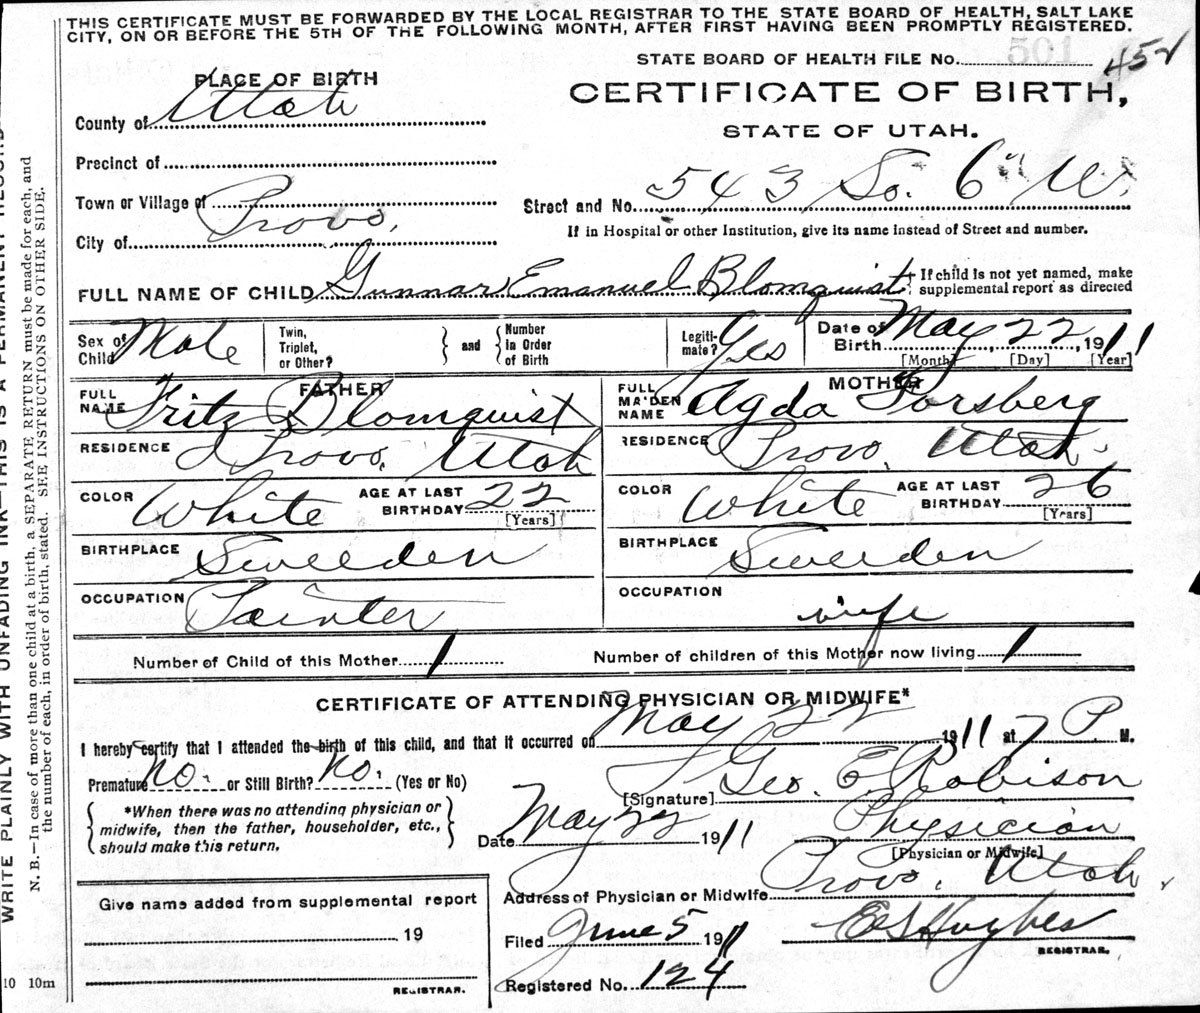 THIS CERTIFICATE MUST BE FORWARDED BY THE LOCAL REGISTRAR TO THE STATE BOARD OF HEALTH, SALT LAKE
CITY, ON OR BEFORE THE 5TH OF THE FOLLOWING MONTH, AFTER FIRST HAVING BEEN PROMPTLY REGISTERED.
STATE BOARD OF HEALTH FILE No. 501 452
PLACE OF BIRTH
CERTIFICATE OF BIRTH,
County of Utah
STATE OF UTAH.
Precinct of
Town or Village of
Street and No. 543 So. 6" W.
City of Provo,
If in Hospital or other Institution, give its name instead of Street and number.
FULL NAME OF CHILD Gunnar Emanuel Blomquist If child is not yet named, make
supplemental report as directed
Sex of Child Male Twin, Triplet, or Other? } and { Number in Order of Birth Legiti-mate? Yes Date of Birth May 22, 1911
[Month] [Day] [Year]
FATHER MOTHER
FULL NAME Fritz Blomquist FULL MAIDEN NAME Agda Forsberg
RESIDENCE Provo, Utah RESIDENCE Provo, Utah.
COLOR White AGE AT LAST BIRTHDAY 22 [Years] COLOR White AGE AT LAST BIRTHDAY 26 [Years]
BIRTHPLACE Sweeden BIRTHPLACE Sweeden
OCCUPATION Painter OCCUPATION wife
Number of Child of this Mother 1 Number of children of this Mother now living 1
CERTIFICATE OF ATTENDING PHYSICIAN OR MIDWIFE*
I hereby certify that I attended the birth of this child, and that it occurred on May 22 1911 at 7 P. M.
Premature No. or Still Birth? No. (Yes or No)
[Signature] Geo. E Robison
*When there was no attending physician or
midwife, then the father, householder, etc.,
should make this return.
Date May 22 1911 Physician
[Physician or Midwife]
Address of Physician or Midwife Provo, Utah.
Give name added from supplemental report
19
REGISTRAR.
Filed June 5 1911 E S Hughes
REGISTRAR.
Registered No. 124
10 10m
WRITE PLAINLY WITH UNFADING INK—THIS IS A PERMANENT RECORD
N. B.—In case of more than one child at a birth, a SEPARATE RETURN must be made for each, and
the number of each, in order of birth, stated. SEE INSTRUCTIONS ON OTHER SIDE.